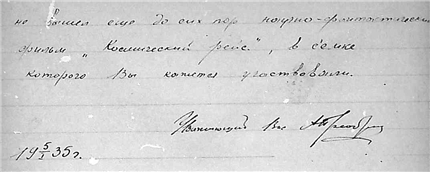 не вышел еще до сих пор научно-фантастический
фильм „Космический рейс", в съемке
которого Вы кажется участвовали.
Уважающий Вас
19 5/I 35 г.